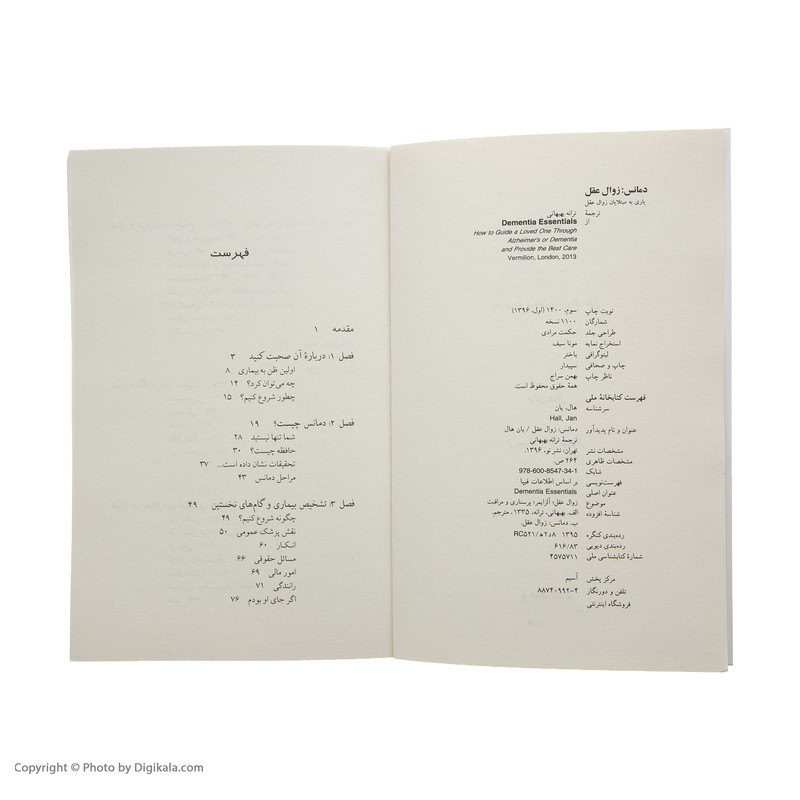 دمانس: زوال عقل
یاری به مبتلایان زوال عقل
ترجمهٔ ترانه بهبهانی
از Dementia Essentials
How to Guide a Loved One Through
Alzheimer's or Dementia
and Provide the Best Care
Vermilion, London, 2013
نوبت چاپ سوم، ۱۴۰۰ (اول، ۱۳۹۶)
شمارگان ۱۱۰۰ نسخه
طراحی جلد حکمت مرادی
استخراج نمایه مونا سیف
لیتوگرافی باختر
چاپ و صحافی سپیدار
ناظر چاپ بهمن سراج
همهٔ حقوق محفوظ است.
فهرست کتابخانهٔ ملی
سرشناسه هال، یان
Hall, Jan
عنوان و نام پدیدآور دمانس: زوال عقل / یان هال
ترجمهٔ ترانه بهبهانی
مشخصات نشر تهران: نشر نو، ۱۳۹۶.
مشخصات ظاهری ۲۶۴ ص.
شابک 978-600-8547-34-1
فهرست‌نویسی بر اساس اطلاعات فیپا
عنوان اصلی Dementia Essentials
موضوع زوال عقل؛ آلزایمر؛ پرستاری و مراقبت
شناسهٔ افزوده الف. بهبهانی، ترانه، ۱۳۳۵، مترجم.
ب. دمانس: زوال عقل.
رده‌بندی کنگره ۱۳۹۵ ۸د۲ه/RC۵۲۱
رده‌بندی دیویی ۶۱۶/۸۳
شمارهٔ کتابشناسی ملی ۴۵۷۵۷۱۱
مرکز پخش آسیم
تلفن و دورنگار ۸۸۷۴۰۹۹۲-۴
فروشگاه اینترنتی
فهرست
مقدمه ۱
فصل ۱: دربارهٔ آن صحبت کنید ۳
اولین ظن به بیماری ۸
چه می‌توان کرد؟ ۱۴
چطور شروع کنیم؟ ۱۵
فصل ۲: دمانس چیست؟ ۱۹
شما تنها نیستید ۲۸
حافظه چیست؟ ۳۰
تحقیقات نشان داده است... ۳۷
مراحل دمانس ۴۳
فصل ۳: تشخیص بیماری و گام‌های نخستین ۴۹
چگونه شروع کنیم؟ ۴۹
نقش پزشک عمومی ۵۰
انکار ۶۰
مسائل حقوقی ۶۶
امور مالی ۶۹
رانندگی ۷۱
اگر جای او بودم ۷۶
Copyright © Photo by Digikala.com